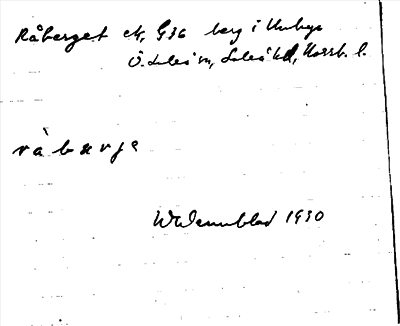 Råberget ek, G36 berg i Unbyn
Ö. Luleå sn, Luleå td, Norrb. l.
råbærje
W Wennblad 1930